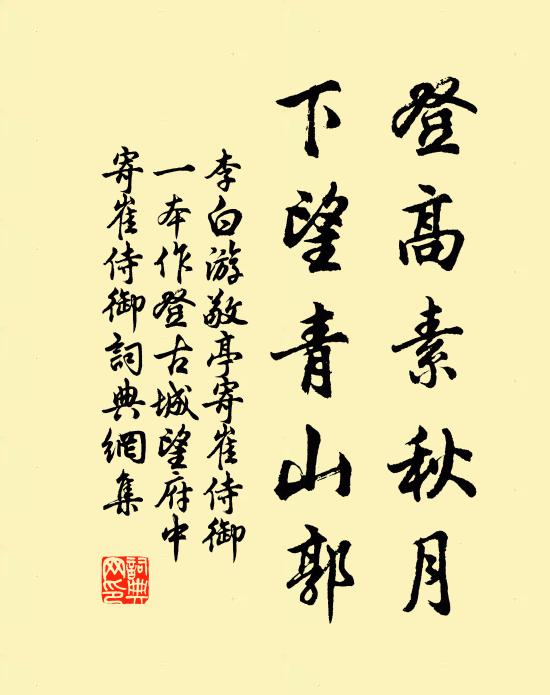 登高素秋月
下望青山郭
李白游敬亭寄崔侍御
一本作登古城望府中
寄崔侍御詞典網集
詞典網印